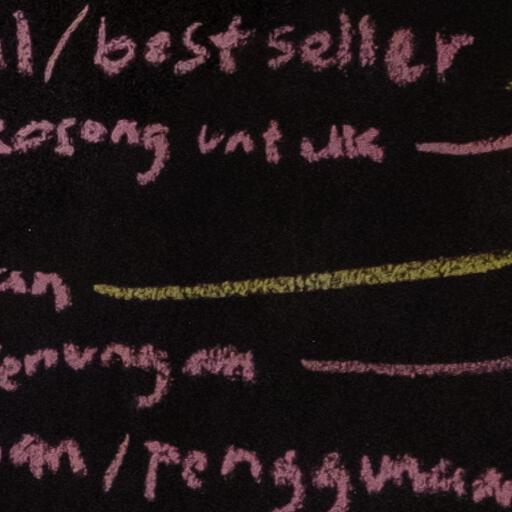 l/best seller
kosong untuk
an
enungan
an/penggunaan